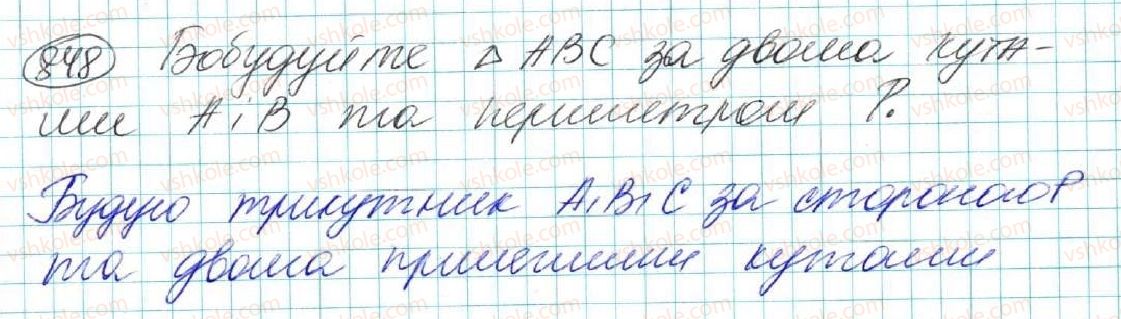 848 Побудуйте △ ABC за двома кута-
ми A і B та периметром P.
Будую трикутник A₁B₁C за стороною P
та двома прилеглими кутами